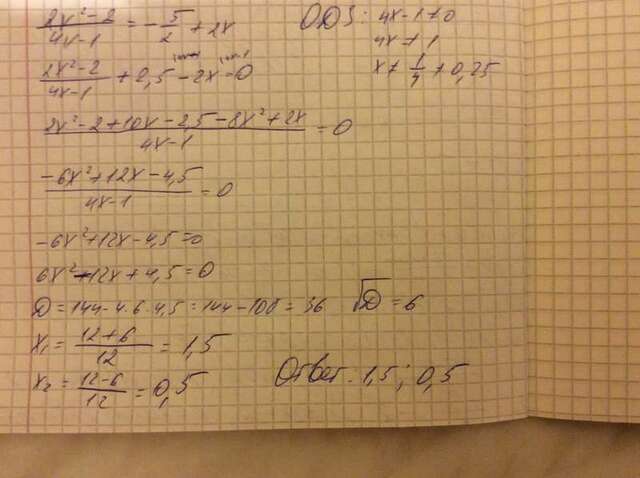 (2x²-2)/(4x-1) = -5/2 + 2x
ОДЗ: 4x-1≠0
4x≠1
x≠1/4≠0,25
(2x²-2)/(4x-1) + 2,5 - 2x = 0
(2x²-2+10x-2,5-8x²+2x)/(4x-1) = 0
(-6x²+12x-4,5)/(4x-1) = 0
-6x²+12x-4,5=0
6x²-12x+4,5=0
D=144-4·6·4,5=144-108=36 √D=6
x₁=(12+6)/12=1,5
x₂=(12-6)/12=0,5
Ответ. 1,5; 0,5